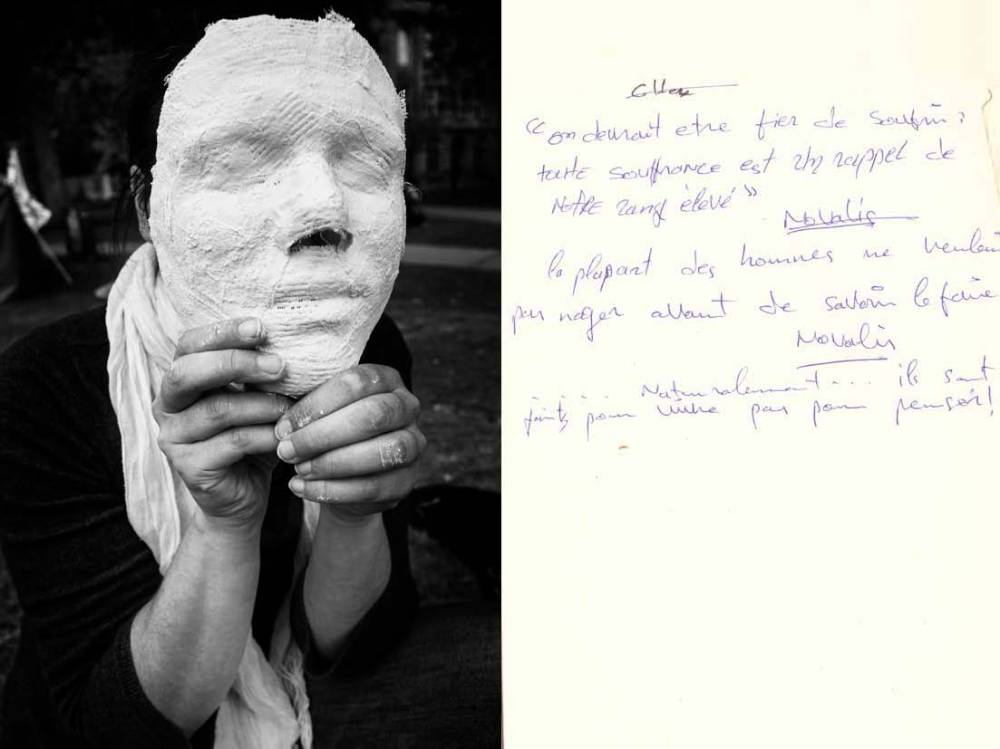 « on devrait etre fier de souffrir ;
toute souffrance est un rappel de
notre rang élevé »
Novalis
la plupart des hommes ne veulent
pas nager avant de savoir le faire
Novalis
. . . . Naturalement . . . ils sont
faits pour vivre pas pour penser!